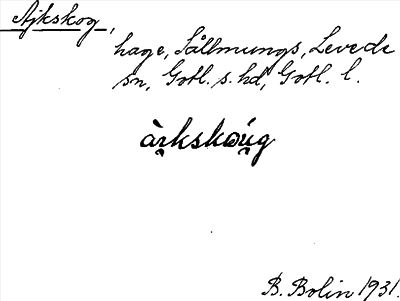 Ajkskog,
hage, Sällmungs, Levede
sn, Gotl. s. hd, Gotl. l.
ài̯kskωú̯g
B. Bolin 1931.